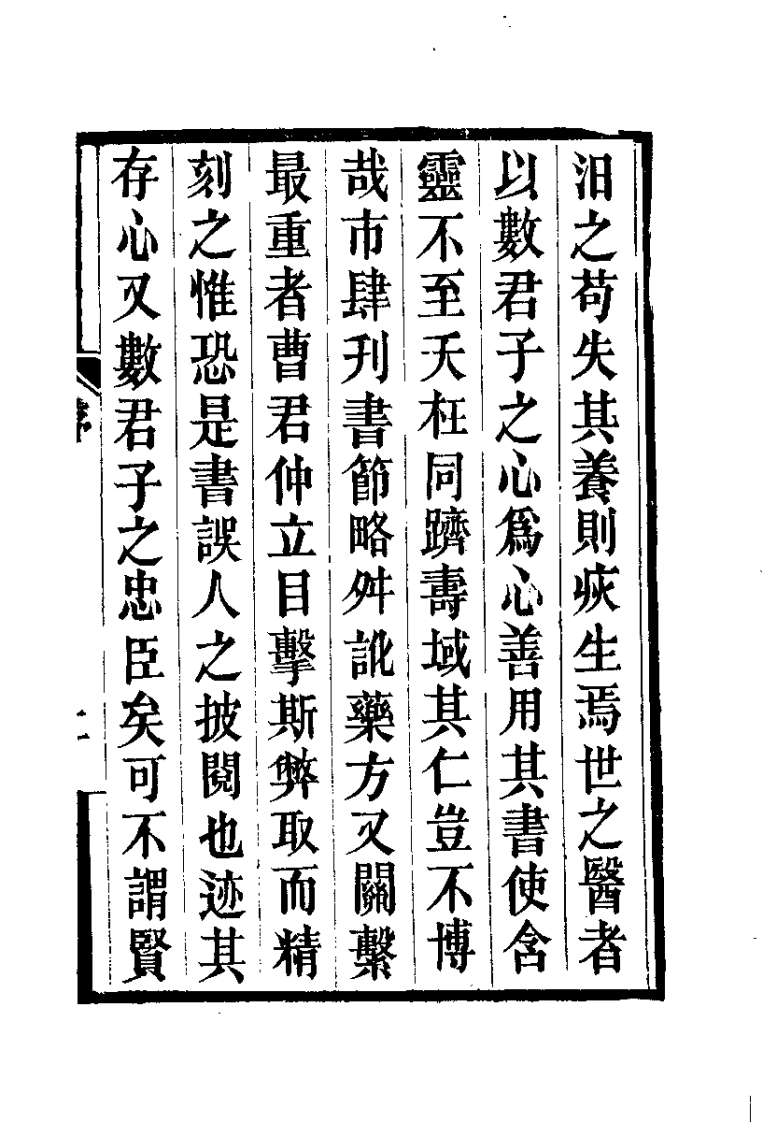 汨之苟失其養則疢生焉世之醫者
以數君子之心爲心善用其書使含
靈不至夭枉同躋壽域其仁豈不博
哉市肆刋書節略舛訛藥方又關繫
最重者曹君仲立目擊斯弊取而精
刻之惟恐是書誤人之披閱也迹其
存心又數君子之忠臣矣可不謂賢
序
二